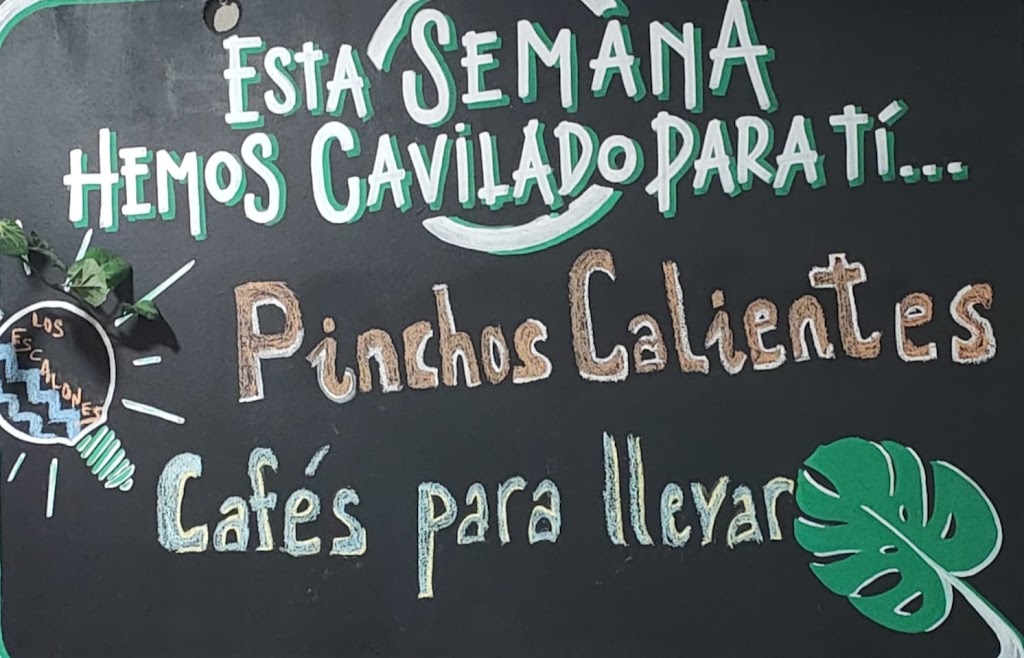 ESTA SEMANA
HEMOS CAVILADO PARA TÍ...
Pinchos Calientes
LOS
ESCALONES
Cafés para llevar